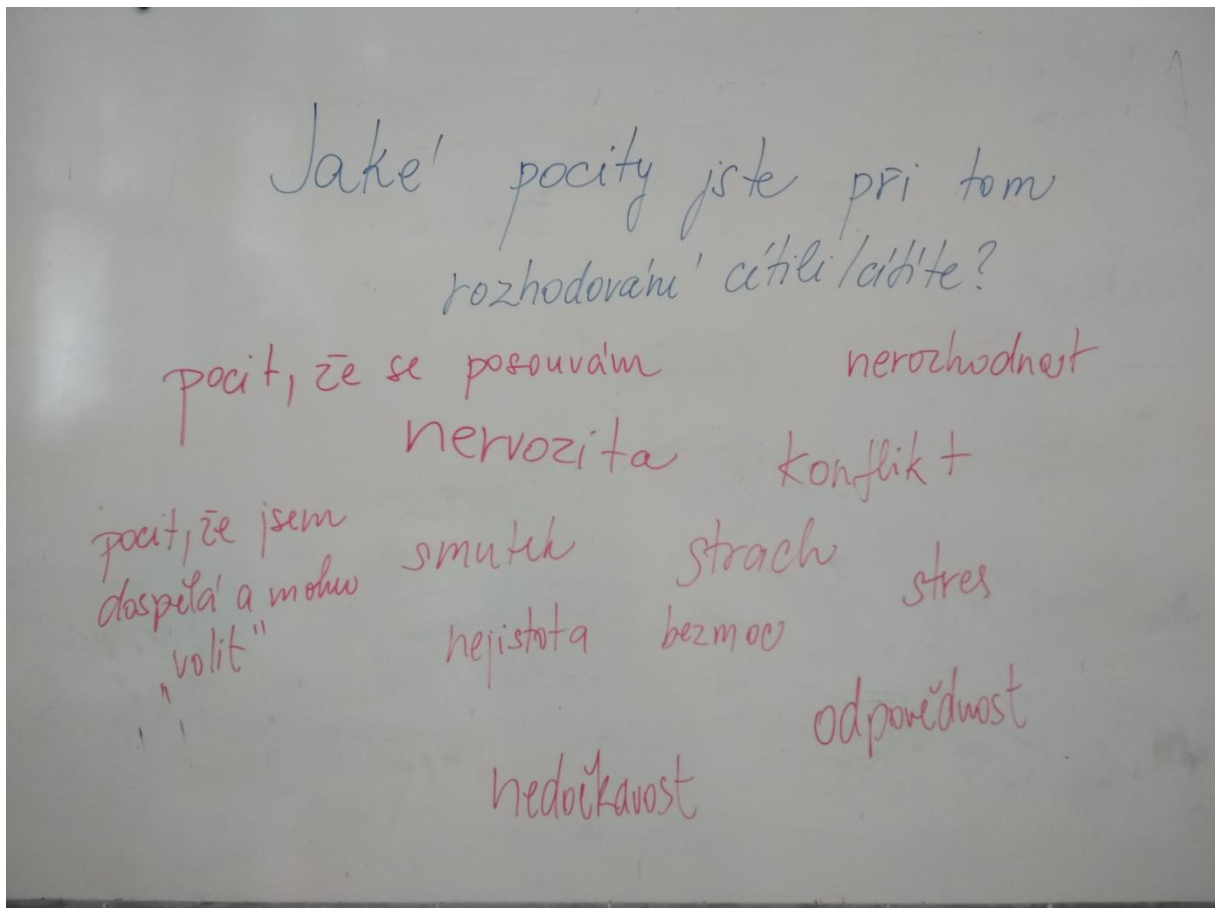 Jaké pocity jste při tom
rozhodování cítili/cítíte?
pocit, že se posouvám
nerozhodnost
nervozita
konflikt
pocit, že jsem
dospělá a mohu
„volit"
smutek
strach
stres
nejistota
bezmoc
odpovědnost
nedočkavost